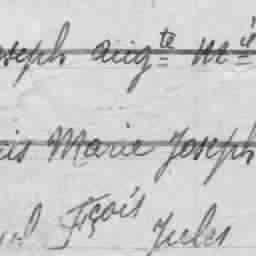 Joseph Aug^te M^ie
Marie Joseph
Fçois Jules